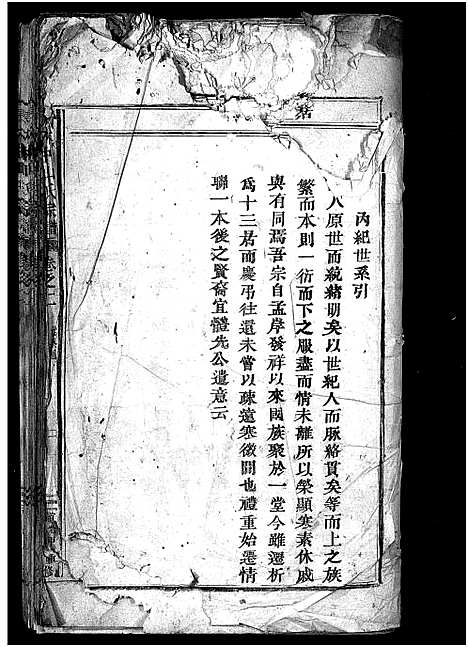 內紀世系引
人原世而統緒明矣以世紀人而脉絡貫矣等而上之族
繁而本則一衍而下之服盡而情未離所以榮顯寒素休戚
與有同焉吾宗自孟岸發祥以來國族聚於一堂今雖遷析
為十三居而慶弔往還未嘗以疎遠寒微間也禮重始遷情
聯一本後之賢裔宜體先公遺意云